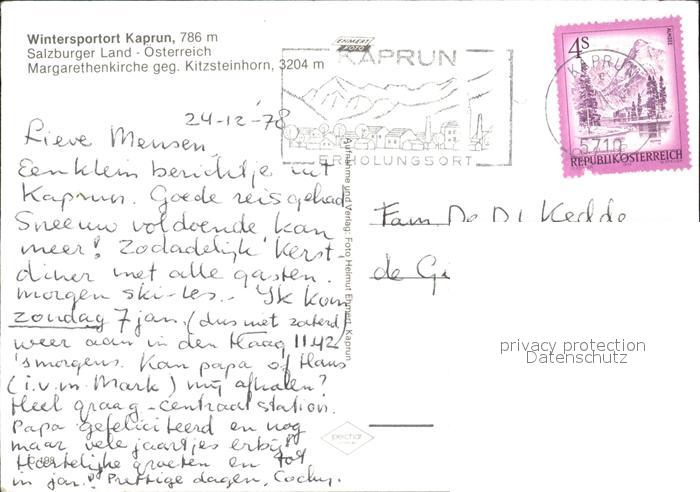 Wintersportort Kaprun, 786 m
Salzburger Land - Österreich
Margarethenkirche geg. Kitzsteinhorn, 3204 m
EHMERT
FOTO
KAPRUN
ERHOLUNGSORT
4s
ALMSEE
KAPRUN
5710
REPUBLIK ÖSTERREICH
24-12-'78
Lieve Mensen,
Een klein berichtje uit
Kaprun. Goede reis gehad
Sneeuw voldoende kan
meer! Zodadelijk Kerst-
diner met alle gasten.
morgen ski-les.. Ik kom
zondag 7 jan. (dus niet zaterd)
weer aan in den Haag 11.42
's morgens. Kan papa of Hans
(i.v.m. Mark) mij afhalen?
Heel graag - centraal station.
Papa gefeliciteerd en nog
maar vele jaartjes erbij!
Hartelijke groeten en tot
in jan.! Prettige dagen, Cocky.
Aufnahme und Verlag: Foto Helmut Ehmert, Kaprun
Fam De
de
privacy protection
Datenschutz
pechar